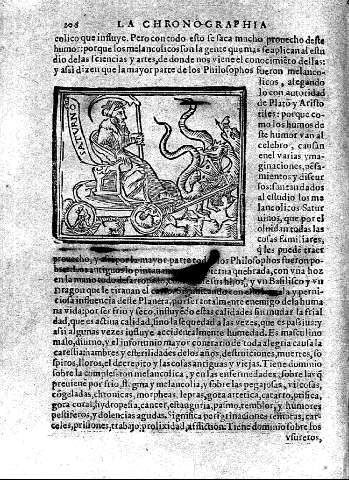 208 LA CHRONOGRAPHIA
colico que influye. Pero con todo esto se saca mucho prouecho deste
humor: porque los melancolicos son la gente que mas se aplican al estu
dio de las sciencias y artes, de donde nos viene el conocimiẽto dellas:
y assi dizen que la mayor parte de los Philosophos fueron melanco-
SATVRNO
licos, alegando
lo con autoridad
de Platõ y Aristo
tiles: porque co mo
los humos de
ste humor van al
celebro, causan
en el varias yma-
ginaciones, pẽsa-
mientos y discur
sos: son tan dados
al estudio los me
lancolicos Satur
ninos, que por el
oluidan todas las
cosas familiares,
q̃ les puede traer
prouecho, y la mayor parte Philosophos fueron po-
bres los antiguos lo pintan quebrada, con vna hoz
en la mano y vn Basilisco y vn
Dragon que le tirauan el y perni-
ciosa influencia deste Planeta, por ser totalmente enemigo de la huma
na vida: por ser frio y seco, influyẽdo estas calidades sin mudar la frial
dad, que es actiua calidad, sino la sequedad a las vezes, que es passiua; y
assi algunas vezes influye accidentalmente humedad. Es masculino
malo, diurno, y el infortunio mayor contrario de toda alegria causa la
carestia hambres y esterilidades de los años, destruiciones, muertes, so
spiros, lloros, el decrepito y las cosas antiguas y viejas. Tiene dominio
sobre la complexion melancolica, y en las enfermedades, sobre las q̃
preuiene por frio, flegma y melancolia, y sobre las pegajosas, viscosas,
cõgeladas, chronicas, morpheas, lepras, gota artetica, catarro, ptisica,
gota coral, hydropesia, cancer, estanguria, pasmo, temblor, y humores
pestiferos, y dolencias agudas. Significa peregrinaciones remotas, car-
celes, prisiones, trabajo, prolixidad, afliction. Tiene dominio sobre los
vsureros,